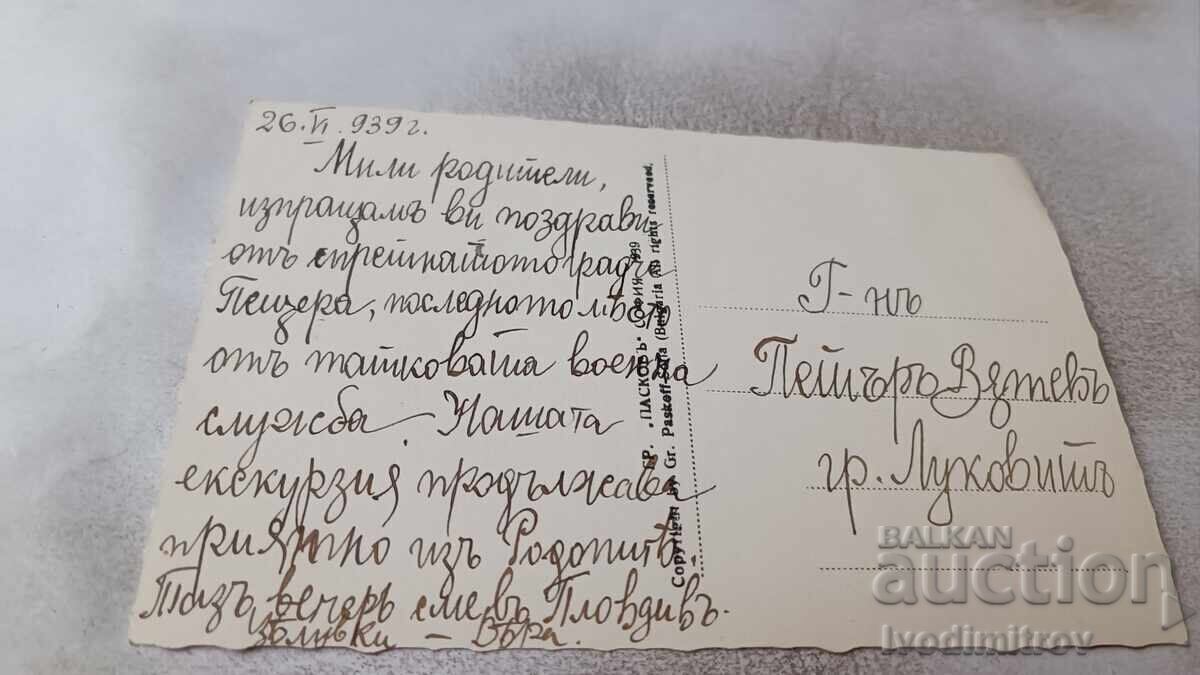 26.VI.939 г.
Мили родители,
изпращамъ ви поздрави
отъ спретнатото градче
Пещера, последното место
отъ татковата военна
служба. Нашата
екскурзия продължава
приятно изъ Родопитѣ.
Тазъ вечерь сме въ Пловдивъ.
Цѣлувки — Вѣра.
ГР. „ПАСКОВЪ“ СОФИЯ 1939
Copyright by Gr. Paskoff-Sofia (Bulgaria) All rights reserved.
Г-нъ
Петъръ Вутевъ
гр. Луковитъ
BALKAN
auction
Ivodimitrov